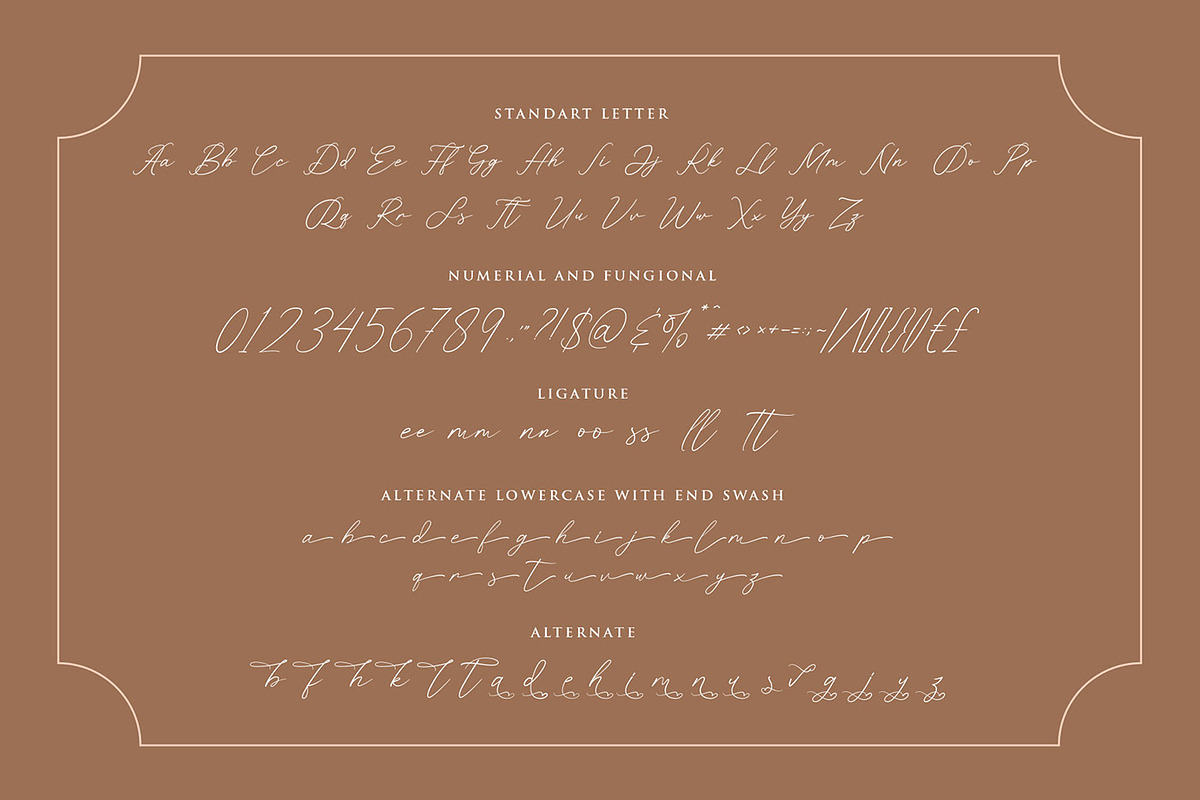 STANDART LETTER
Aa Bb Cc Dd Ee Ff Gg Hh Ii Jj Kk Ll Mm Nn Oo Pp
Qq Rr Ss Tt Uu Vv Ww Xx Yy Zz
NUMERIAL AND FUNGIONAL
0123456789.,'"?!$@&%*^#<>×+-=:;~/|\[]{}()€£
LIGATURE
ee mm nn oo ss ll tt
ALTERNATE LOWERCASE WITH END SWASH
a b c d e f g h i j k l m n o p
q r s t u v w x y z
ALTERNATE
b f h k l t a d e h i m n u s r g j y z